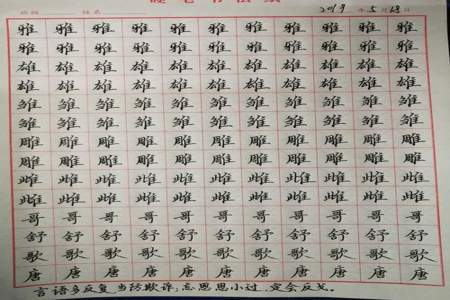 2019年5月
雅雅雅雅雅雅雅雅雅雅雅
雅雅雅雅雅雅雅雅雅雅雅
雄雄雄雄雄雄雄雄雄雄雄
雄雄雄雄雄雄雄雄雄雄雄
雏雏雏雏雏雏雏雏雏雏雏
雏雏雏雏雏雏雏雏雏雏雏
雕雕雕雕雕雕雕雕雕雕雕
雕雕雕雕雕雕雕雕雕雕雕
雌雌雌雌雌雌雌雌雌雌雌
雌雌雌雌雌雌雌雌雌雌雌
哥哥哥哥哥哥哥哥哥哥哥
舒舒舒舒舒舒舒舒舒舒舒
歌歌歌歌歌歌歌歌歌歌歌
唐唐唐唐唐唐唐唐唐唐唐
言语多反复,当防欺诈;忘恩思小过,定会反戈。